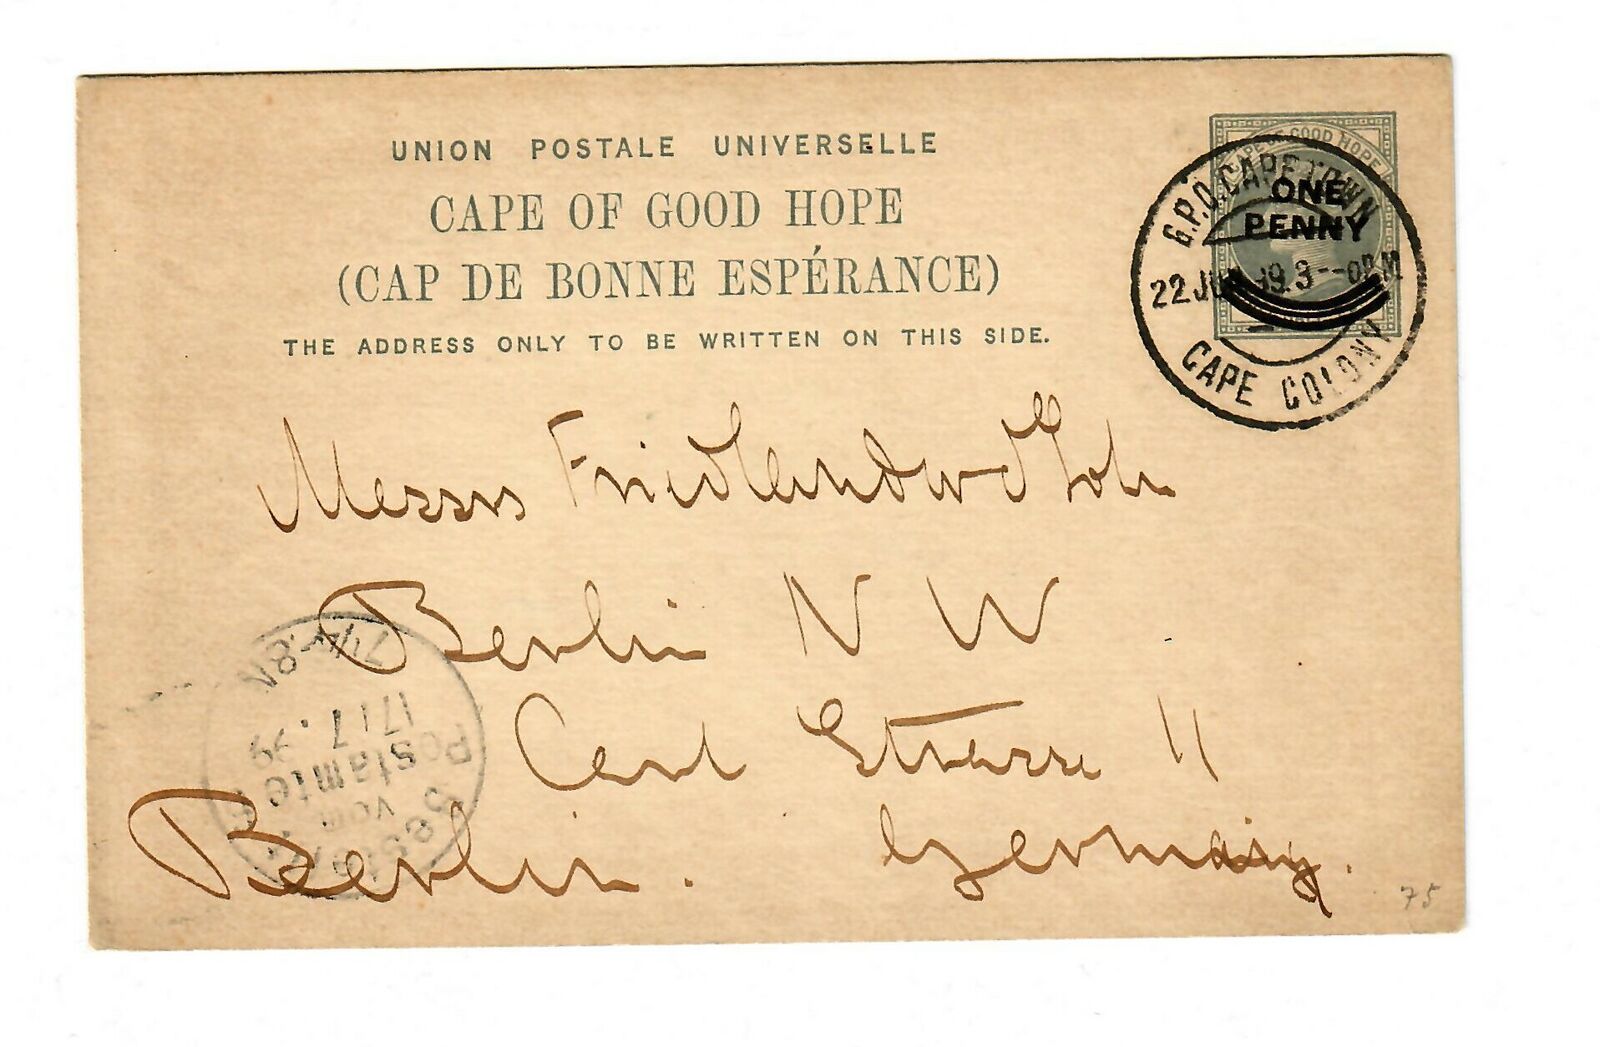 UNION POSTALE UNIVERSELLE
CAPE OF GOOD HOPE
(CAP DE BONNE ESPÉRANCE)
THE ADDRESS ONLY TO BE WRITTEN ON THIS SIDE.
CAPE OF GOOD HOPE
ONE
PENNY
G.P.O. CAPETOWN
22 JU 99. 3--0PM
CAPE COLONY
Messrs Friedlander & Sohn
Berlin N W
Carl Strasse 11
Berlin. Germany.
Bestellt
vom
Postamte
17/7.99
7¼-8N
75